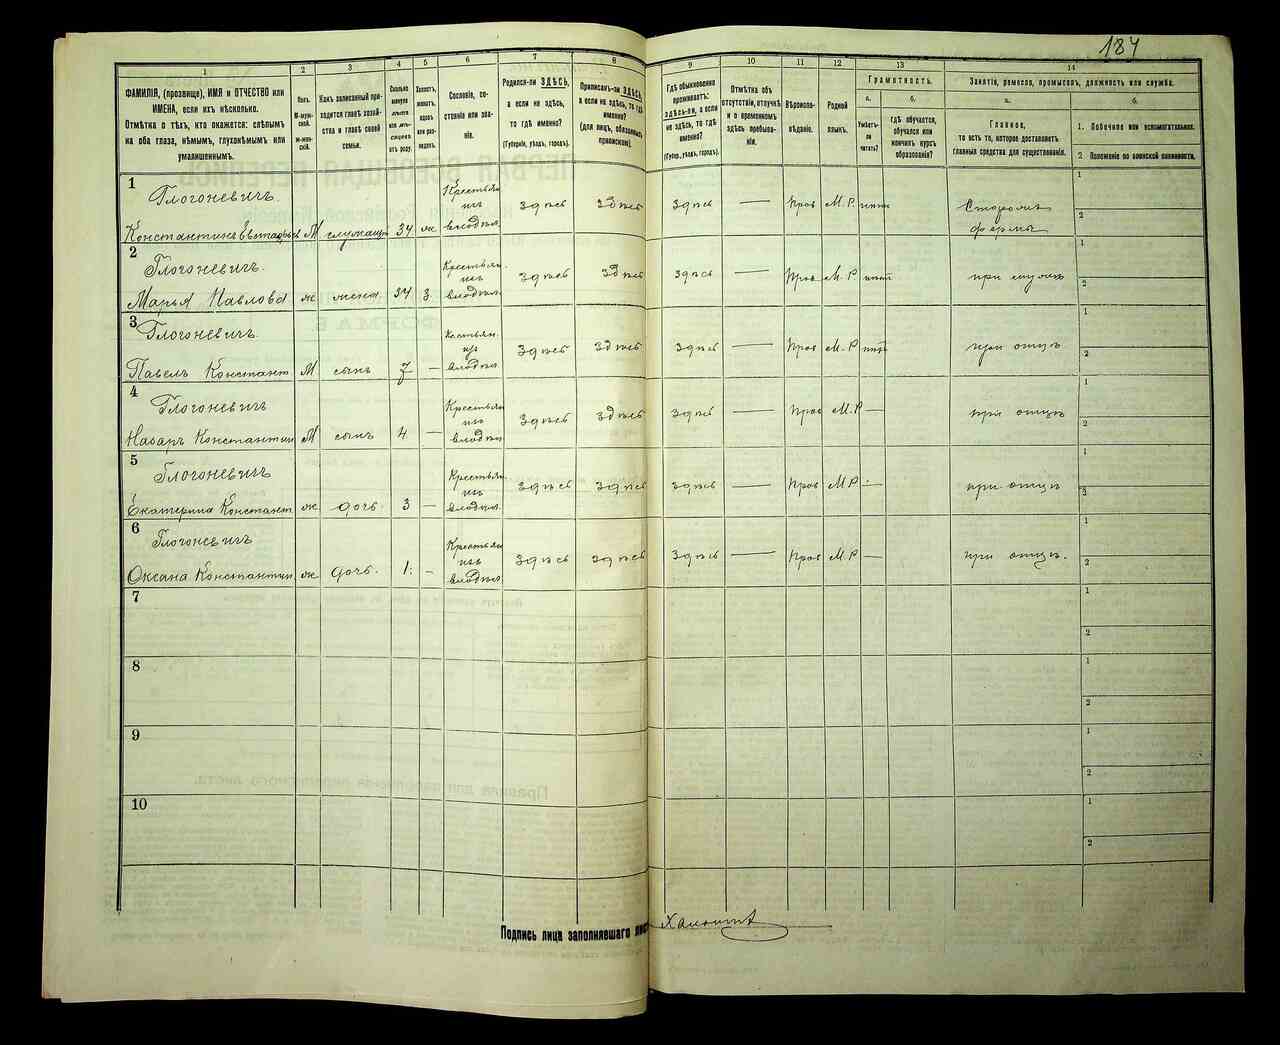 187
1 2 3 4 5 6 7 8 9 10 11 12 13 14
ФАМИЛІЯ, (прозвище), ИМЯ и ОТЧЕСТВО или ИМЕНА, если ихъ нѣсколько.
Отмѣтка о тѣхъ, кто окажется: слѣпымъ на оба глаза, нѣмымъ, глухонѣмымъ или умалишеннымъ.
Полъ.
М-мужской.
ж-женскій.
Какъ записанный приходится главѣ хозяйства и главѣ своей семьи.
Сколько минуло лѣтъ или мѣсяцевъ отъ роду.
Холостъ, женатъ, вдовъ или разведенъ.
Сословіе, состояніе или званіе.
Родился-ли ЗДѢСЬ, а если не здѣсь, то гдѣ именно?
(Губернія, уѣздъ, городъ).
Приписанъ-ли ЗДѢСЬ, а если не здѣсь, то гдѣ именно?
(для лицъ, обязанныхъ припискою).
Гдѣ обыкновенно проживаетъ: здѣсь-ли, а если не здѣсь, то гдѣ именно?
(Губер., уѣздъ, городъ).
Отмѣтка объ отсутствіи, отлучкѣ и о временномъ здѣсь пребываніи.
Вѣроисповѣданіе.
Родной языкъ.
Грамотность.
а.
Умѣетъ-ли читать?
б.
гдѣ обучается, обучался или кончилъ курсъ образованія?
Занятіе, ремесло, промыселъ, должность или служба.
а.
Главное,
то есть то, которое доставляетъ главныя средства для существованія.
б.
1. Побочное или вспомогательное.
2 Положеніе по воинской повинности.
1
Глогоневичъ
Константинъ М служащ 34 ж Крестьян изъ владѣл здѣсь здѣсь здѣсь — Прав М.Р. Сторожъ фермы
1
2
2
Глогоневичъ.
Марья Павлова ж жена 34 з Крестьян. изъ владѣл. здѣсь здѣсь здѣсь — Прав М.Р при мужѣ
1
2
3
Глогоневичъ
Павелъ Констант М сынъ 7 — изъ владѣл. здѣсь здѣсь здѣсь — Прав М.Р при отцѣ
1
2
4
Глогоневичъ
Назаръ Константин М сынъ 4 — Крестьян изъ владѣл здѣсь здѣсь здѣсь — Прав М.Р — при отцѣ
1
2
5
Глогоневичъ
Екатерина Констант ж дочь 3 — Крестьян изъ владѣл. здѣсь здѣсь здѣсь — Прав М.Р — при отцѣ
1
2
6
Глогоневичъ
Оксана Константин ж дочь. 1. — Крестьян изъ владѣл. здѣсь здѣсь здѣсь — Прав М.Р — при отцѣ.
1
2
7
1
2
8
1
2
9
1
2
10
1
2
Подпись лица заполнявшаго